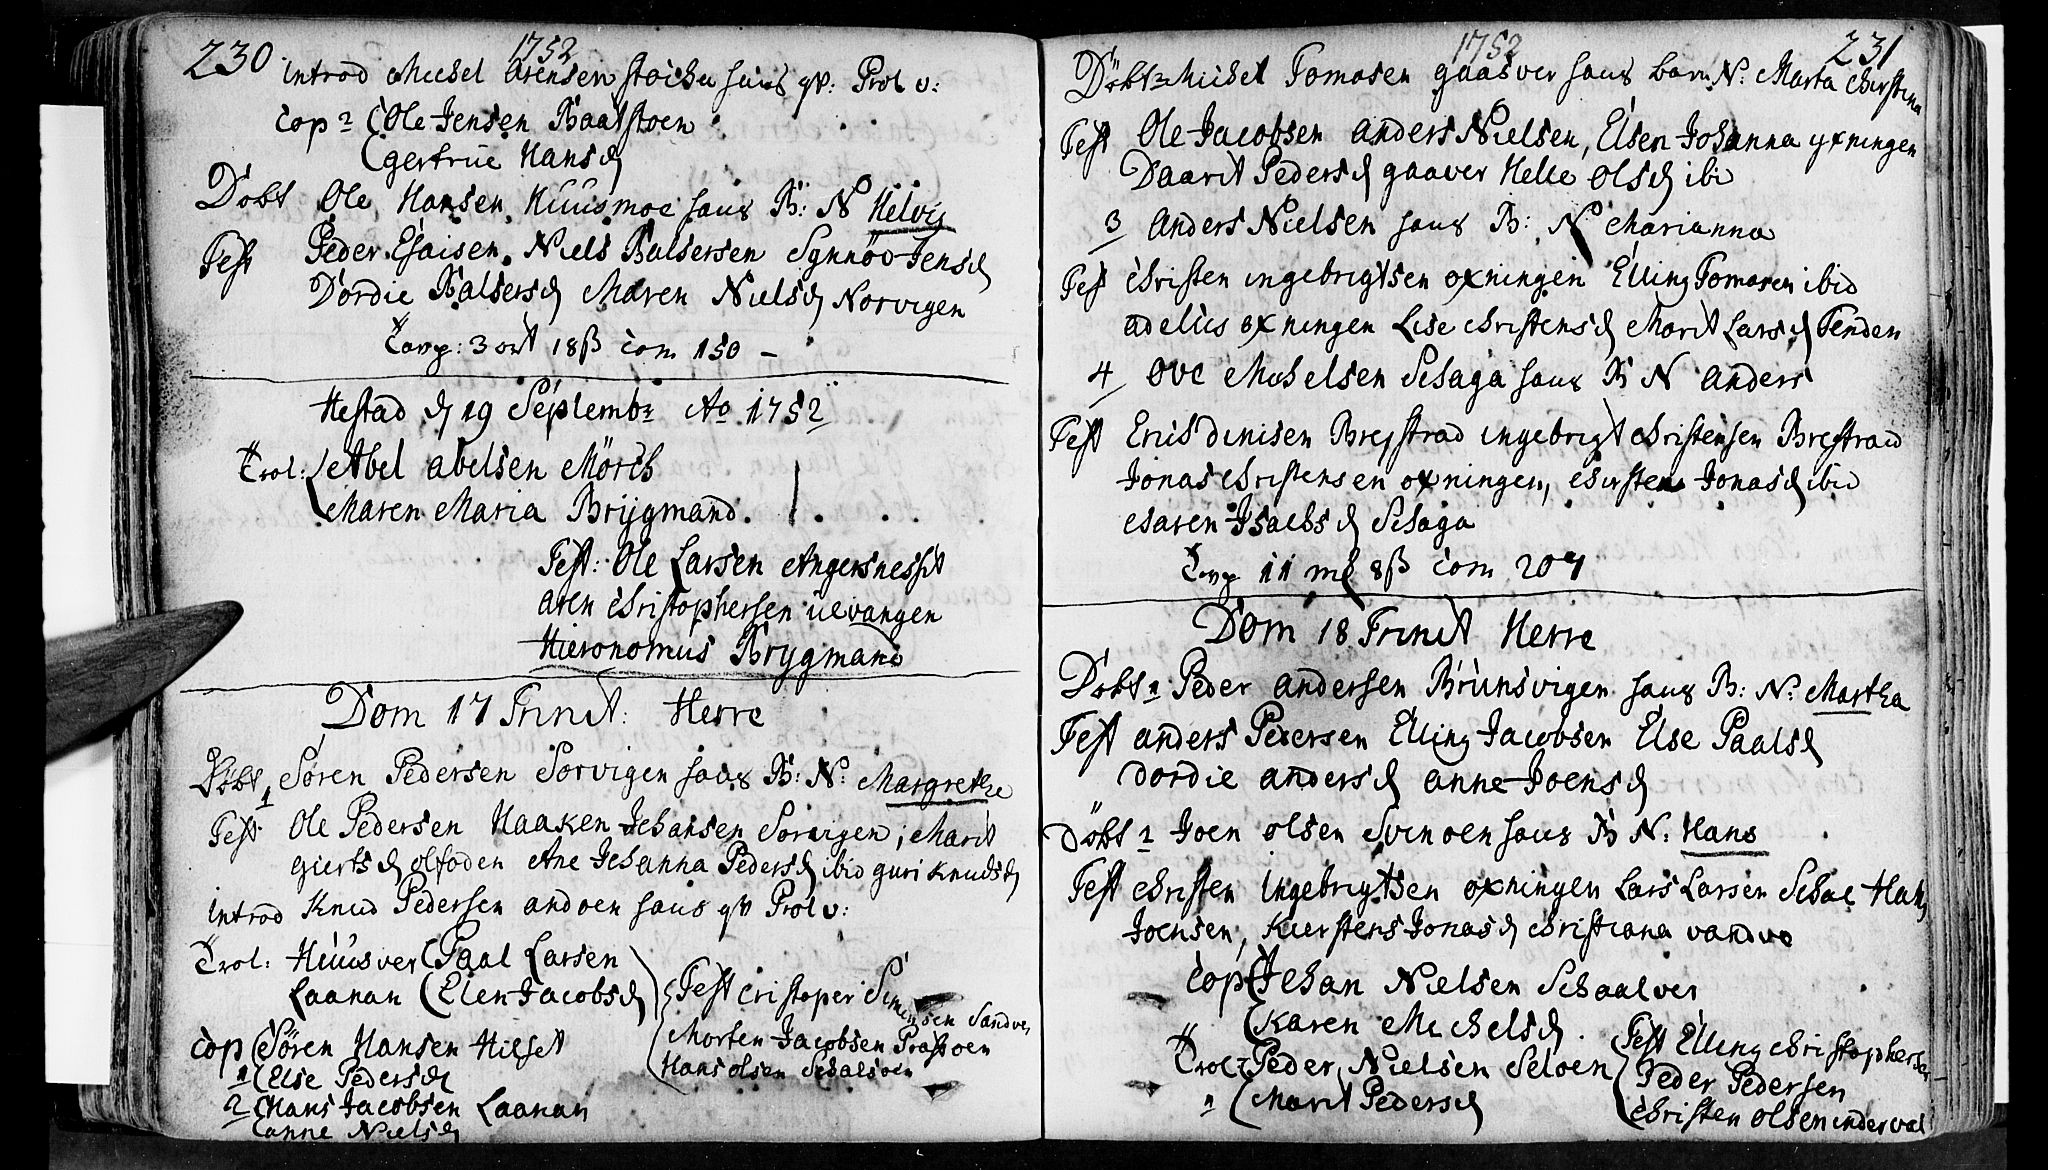 230
1752
introd Michel Arensen stochu hans qv: Prol v:
Cop 2 Ole Jensen Baalstoen
gertrue Hansd
Döbt Ole Hansen Huusmoe hans B: N Helvig
Test Peder Esaisen, Niels Balsersen Synnöv Jensd
Dordie Balsersd Maren Nielsd Norvigen
Tavp: 3 ort 18 ß Com 150 –
Hestad d 19 Septembr Ao 1752
Trol: Abel abelsen Mörch
Maren Maria Brÿgmand.
Test: Ole Larsen Angersnesset
aren Christophersen ulvangen
Hieronomus Brygmand
Dom 17 Trinit: Herre
Döbt 1 Sören Pedersen Sorvigen hans B: N: Margrethe
Test Ole Pedersen Haaken Johansen Sorvigen, Marit
giertsd olfoden Ane Johanna Pedersd ibid guri Knudsd
introd Knud Pedersen andoen hans qv Prol v:
Trol: Huusver Paal Larsen
Laanan Elen Jacobsd
Test Cristoper Simensen Sandver
Morten Jacobsen Prastoen
Hans olsen Schalsoen
Cop Sören Hansen Hilset
1 Else Pedersd
2 Hans Jacobsen Laanan
anne Nielsd
1752
231
Döbt 2 Michel Tomasen gaasver hans barn N: Marta Chirstina
Test Ole Jacobsen anders Nielsen, Elsen Johanna yxningen
Daarit Pedersd gaaver Helle olsd ibi
3 Anders Nielsen hans B: N Marianna
Test Christen ingebrigtsen oxningen Elling Tomasen ibid
adelus oxningen Lise Christensd Marit Larsd Tenden
4 Ove Michelsen Schaga hans B N anders
Test Erich dinisen Brejstrad ingebrigt Christensen Brejstrad
Jonas Christensen oxningen, Chirsten Jonasd ibid
Maren Isachsd Schaga
Tavp 11 mk 8 ß Com 207
Dom 18 Trinit Herre
Döbt 1 Peder andersen Brunsvigen hans B: N: Martha
Test anders Pedersen Elling Jacobsen Else Paalsd
dordie andersd anne Joensd
Döbt 2 Joen olsen Svinoen hans B N: Hans
Test Christen Ingebrigtsen oxningen Lars Larsen Schal Hans
Joensen, Kierstens Jonasd Christiana vandve
Cop Johan Nielsen Schaalver
Karen Michelsd
Trol Peder Nielsen Seloen
1 Marit Pedersd
Test Elling Christophersen
Peder Pedersen
Christen olsen inderval